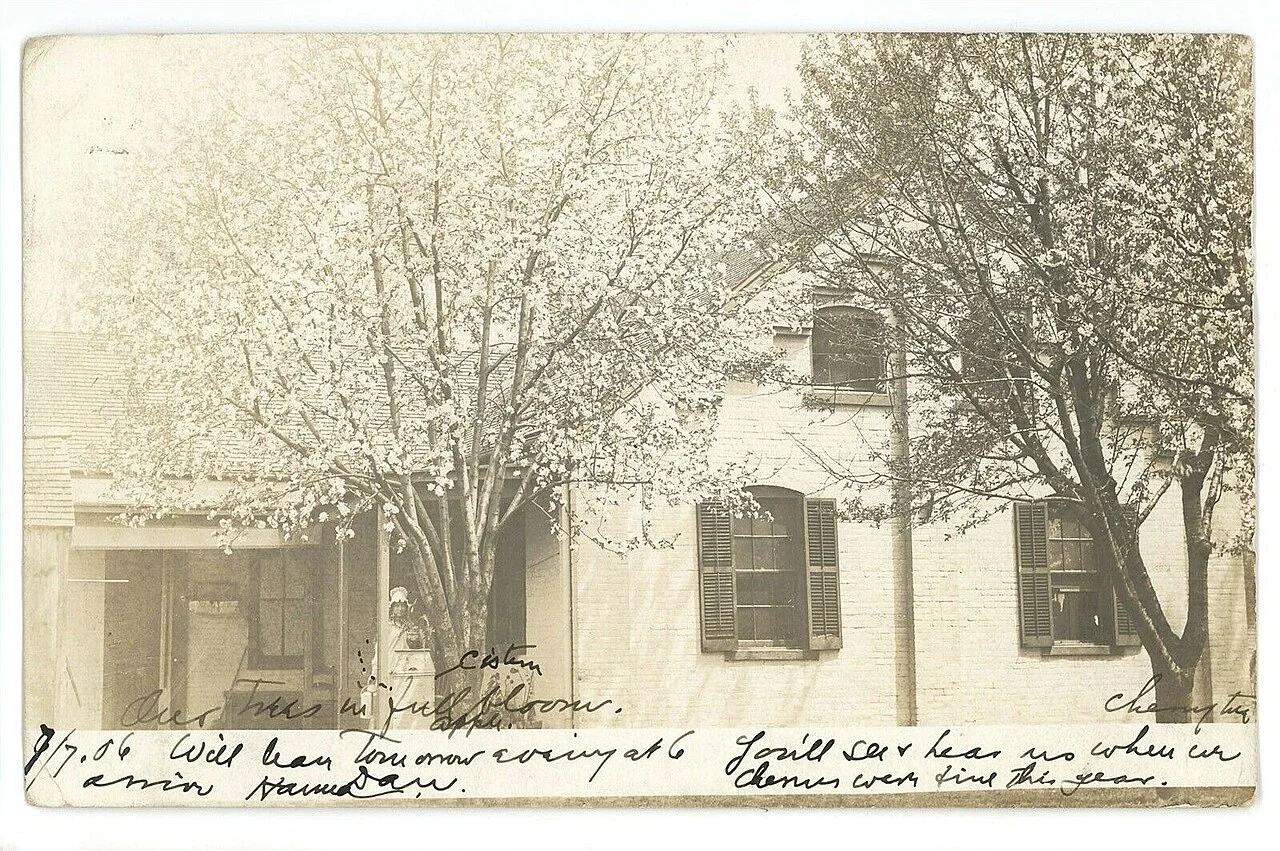 Cistern
Our Trees in full bloom.
apple.
cherry tree
7/7.06 Will leav Tomorrow evening at 6 You'll see & hear us when we
arrive Dan. Cherries were fine this year.